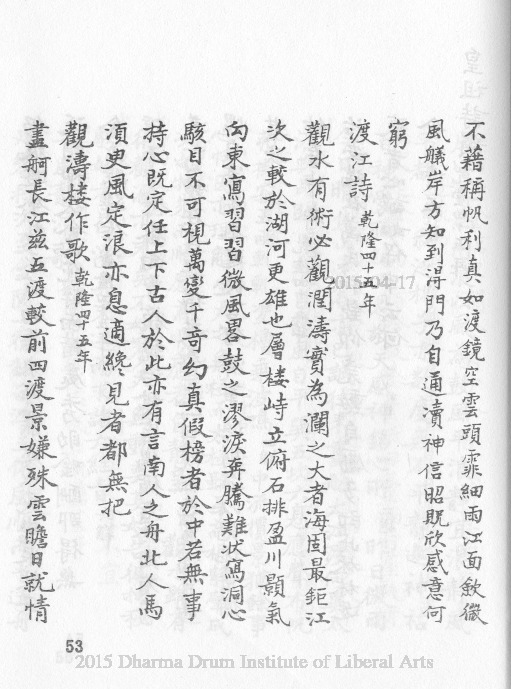 不藉稱帆利真如渡鏡空雲頭霏細雨江面斂微
風艤岸方知到潯門乃自通瀆神信昭貺欣感意何
窮
渡江詩 乾隆四十五年
觀水有術必觀瀾濤實為瀾之大者海固最鉅江
次之較於湖河更雄也層楼峙立俯石排盈川顥氣
向東寫習習微風畧鼓之漻淚奔騰難狀寫洞心
駭目不可視萬變千奇幻真假榜者於中若無事
持心既定任上下古人於此亦有言南人之舟北人馬
須臾風定浪亦息適纔見者都無把
觀濤楼作歌 乾隆四十五年
畫舸長江兹五渡較前四渡景嫌殊雲瞻日就情
53
2015-04-17
2015 Dharma Drum Institute of Liberal Arts